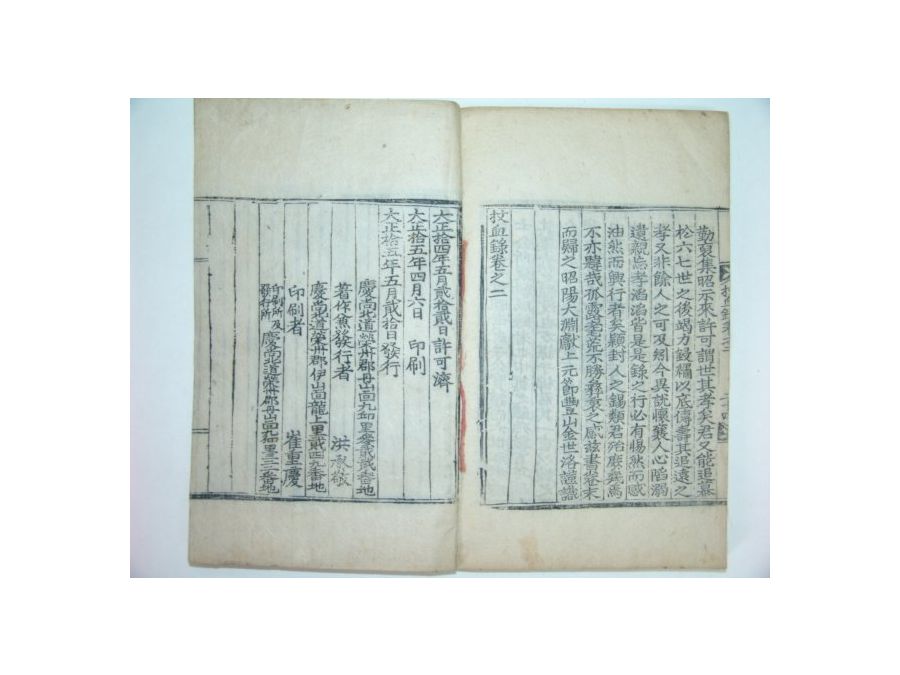 勤裒集昭示來許可謂世其孝矣君又能追慕
松六七世之後竭力致禋以底傳壽其追遠之
孝又非餘人之可及矧今異說懷襄人心陷溺
遺親無孝滔滔皆是是錄之行必有惕然而感
油然而興行者矣顈封人之錫類君殆庶幾焉
不亦韙哉孤露孝荒不勝彛秉之感玆書卷末
而歸之昭陽大淵獻上元節豐山金世洛謹識
抆血錄卷之二
抆血錄卷之二
大正拾四年五月貳拾貳日 許可濟
大正拾五年四月六日 印刷
大正拾五年五月貳拾日 發行
慶尚北道榮州郡丹山面九邱里參貳貳番地
著作兼發行者 洪承敬
慶尚北道榮州郡伊山面龍上里貳四九番地
印刷者 崔重慶
印刷所及發行所 慶尚北道榮州郡丹山面九邱里三二番地